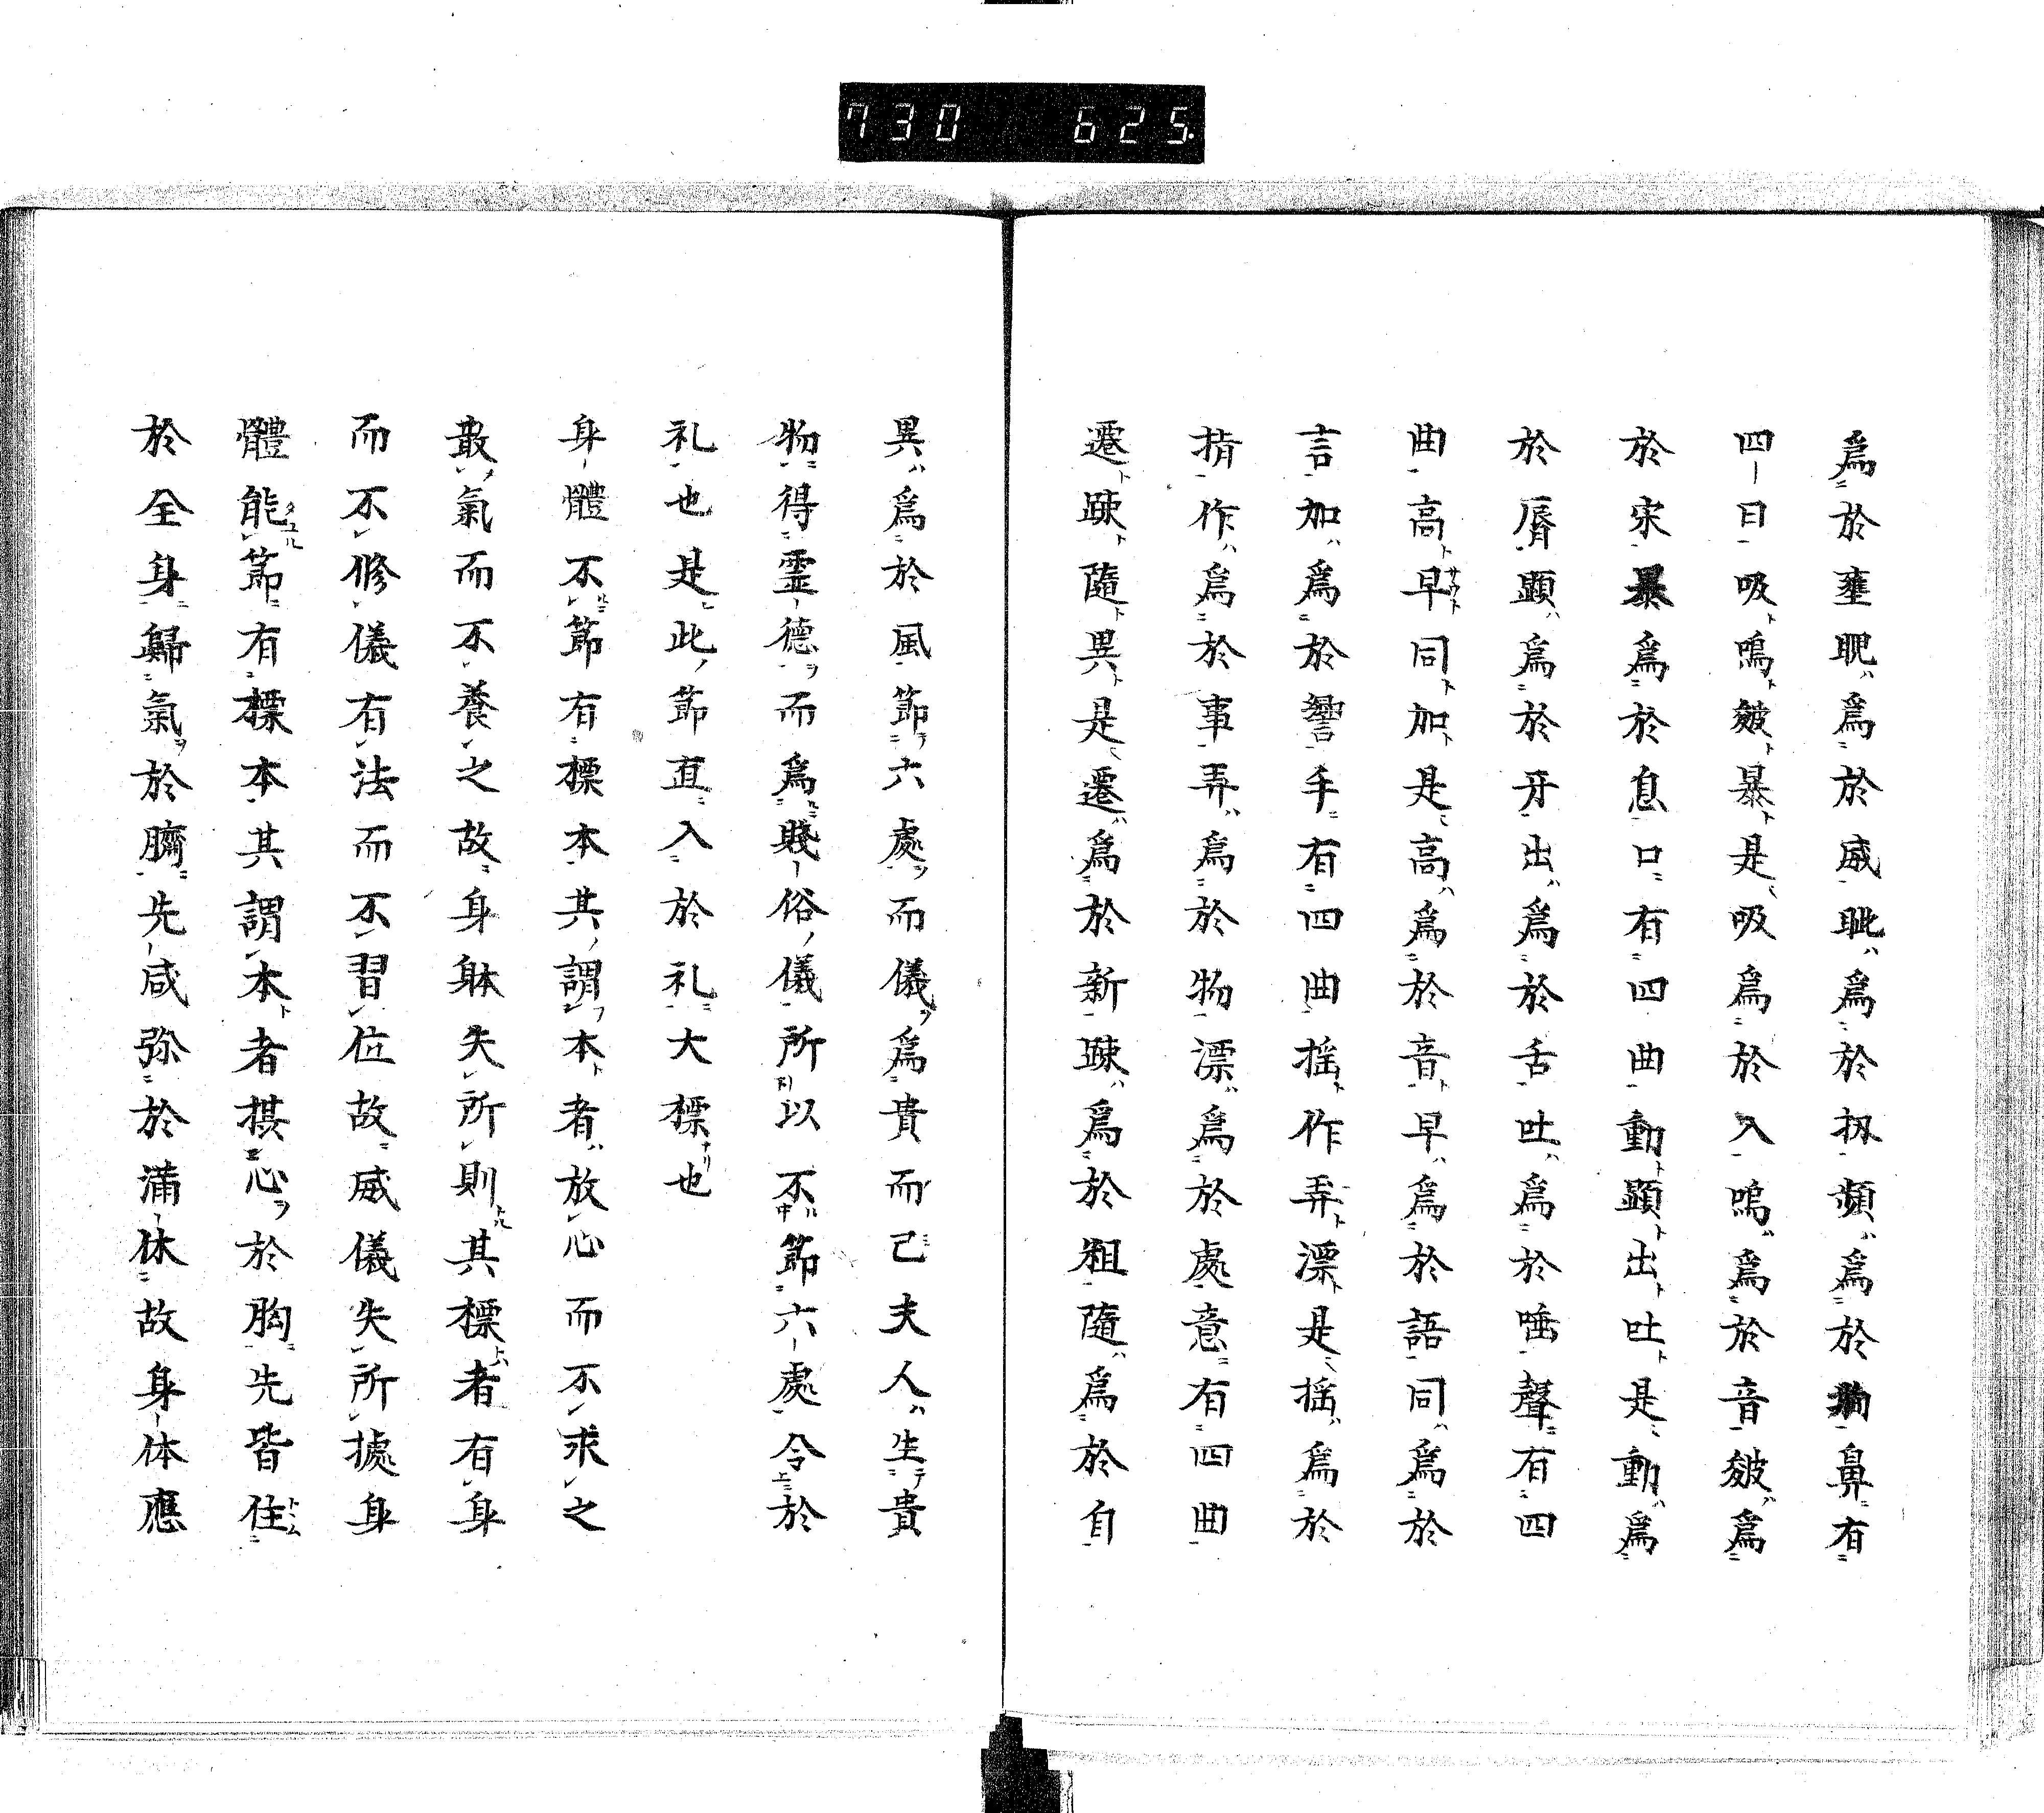 730 625.
爲於壅睨爲於威眦爲於扨頻爲於鼻有
四曰吸嗚皴暴是吸爲於入嗚爲於音皴爲
於宋暴爲於息口有四曲動顕出吐是動爲
於脣顕爲於牙出爲於舌吐爲於唾聲有四
曲高早同加是高爲於音早爲於語同爲於
言加爲於譽手有四曲揺作弄漂是揺爲於
揹作爲於事弄爲於物漂爲於處意有四曲
遷踈隨異是遷爲於新踈爲於粗隨爲於自
異爲於風節六處而儀爲貴而己夫人生貴
物得霊德而爲賤俗儀所以不中節六處令於
礼也是此節直入於礼大標也
身體不節有標本其謂本者放心而不求之
散氣而不養之故身躰失所則其標者有身
而不修儀有法而不習位故威儀失所據身
體能節有標本其謂本者棋心於胸先皆住
於全身歸氣於臍先咸弥於満休故身体應